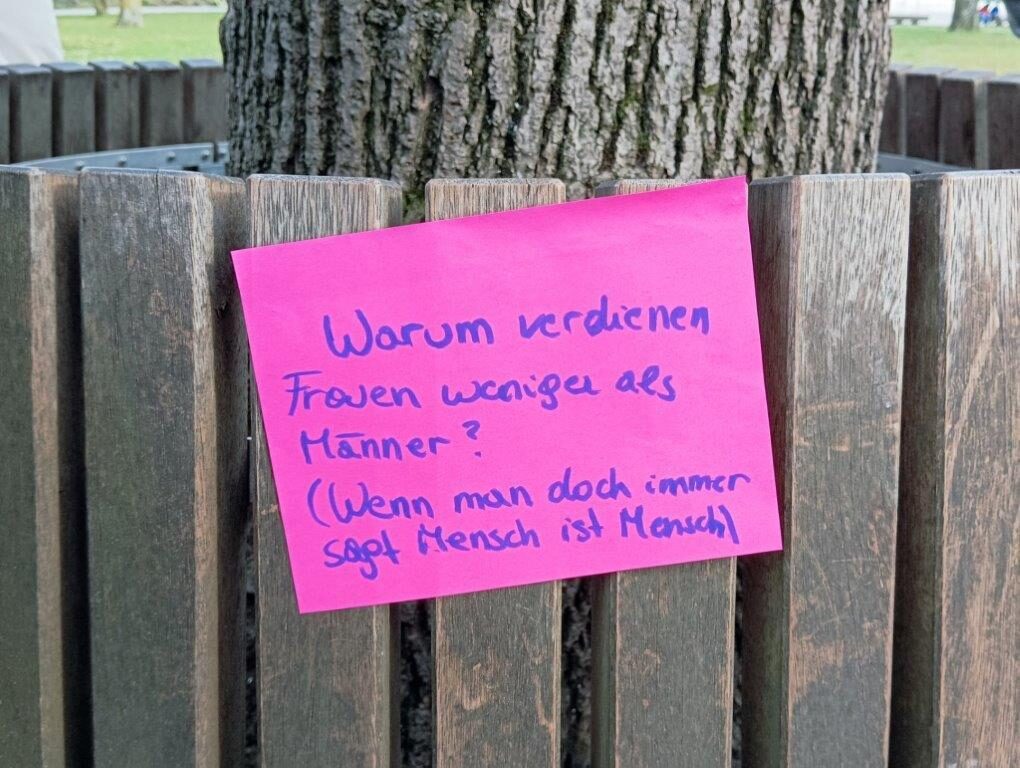 Warum verdienen
Frauen weniger als
Männer?
(Wenn man doch immer
sagt Mensch ist Mensch)